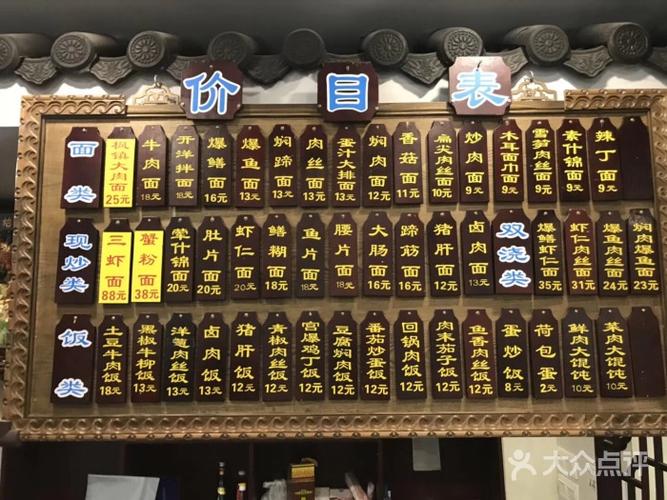 价目表
面类
枫镇大肉面 25元
牛肉面 18元
开洋拌面 18元
爆鳝面 16元
爆鱼面 13元
焖蹄面 13元
肉丝面 13元
蛋汁大排面 13元
焖肉面 12元
香菇面 11元
扁尖肉丝面 10元
炒肉面 9元
木耳面巾面 9元
雪笋肉丝面 9元
素什锦面 9元
辣丁面 9元
现炒类
三虾面 88元
蟹粉面 38元
荤什锦面 20元
肚片面 20元
虾仁面 20元
鳝糊面 18元
鱼片面 18元
腰片面 18元
大肠面 16元
蹄筋面 16元
猪肝面 12元
卤肉面 13元
双浇类
爆鳝虾仁 35元
虾仁肉丝 31元
爆鱼肉丝 24元
焖肉爆鱼 23元
饭类
土豆牛肉饭 18元
黑椒牛柳饭 13元
洋葱肉丝饭 13元
卤肉饭 13元
猪肝饭 12元
青椒肉丝饭 12元
宫爆鸡丁饭 12元
豆腐焖肉饭 12元
番茄炒蛋饭 12元
回锅肉饭 12元
肉末茄子饭 12元
鱼香肉丝饭 12元
蛋炒饭 8元
荷包蛋 2元
鲜肉大馄饨 10元
菜肉大馄饨 10元
大众点评